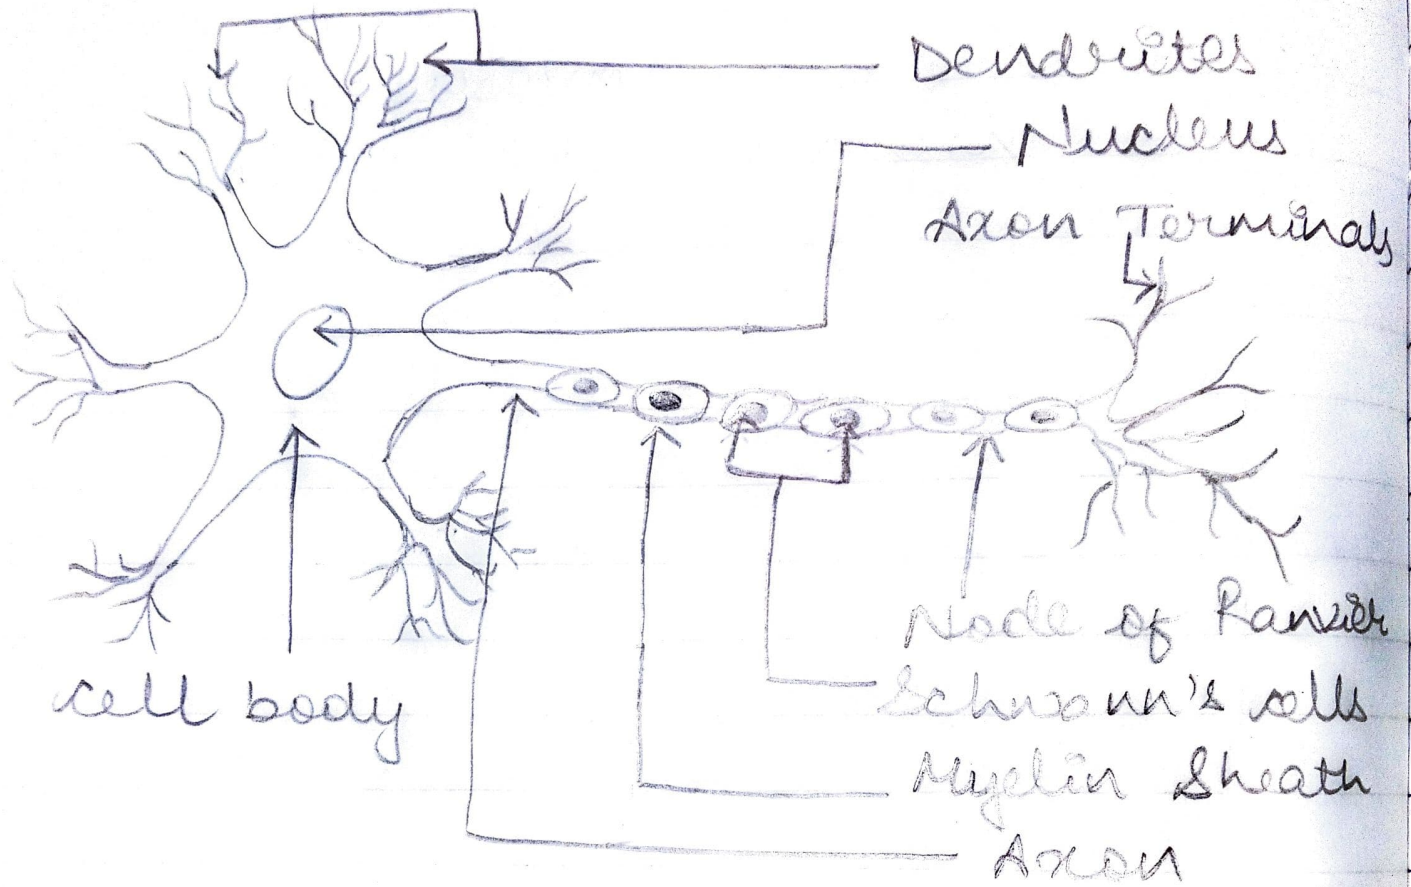 Dendrites
Nucleus
Axon Terminals
Node of Ranvier
Schwann's cells
Myelin Sheath
Axon
cell body